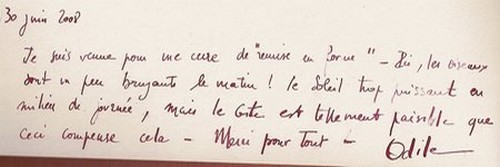 30 juin 2008
Je suis venue pour une cure de "remise en forme" – Ici, les oiseaux
sont un peu bruyants le matin ! le Soleil trop puissant en
milieu de journée, mais le Gîte est tellement paisible que
ceci compense cela – Merci pour Tout –
Odile